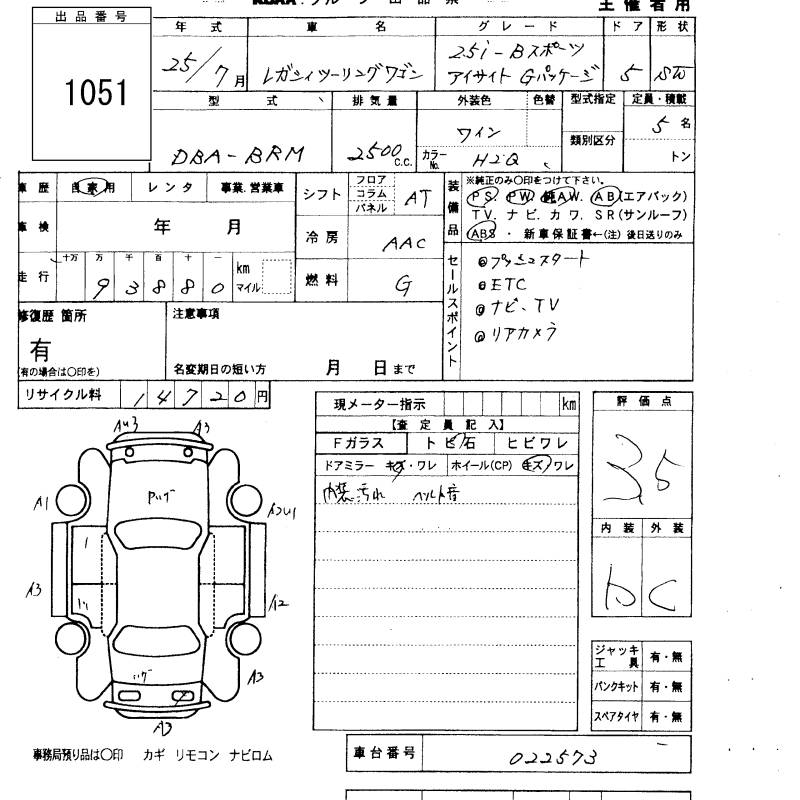 主催者用
出品番号
1051
年式 車名 グレード ドア 形状
25/7月 レガシィツーリングワゴン 2.5i-Bスポーツ アイサイト Gパッケージ 5 SW
型式 排気量 外装色 色替 型式指定 定員・積載
DBA-BRM 2500c.c. ワイン 類別区分 5名
カラーNo. H2Q トン
車歴 自家用 レンタ 事業.営業車
シフト フロア コラム パネル AT
装備品 ※純正のみ〇印をつけて下さい。
PS. PW. 純AW. AB(エアバック)
TV. ナビ. カワ. SR(サンルーフ)
ABS ・ 新車保証書←(注) 後日送りのみ
車検 年 月
冷房 AAC
走行 十万 万 千 百 十 一 km マイル
93880
燃料 G
セールスポイント
◎プッシュスタート
◎ETC
◎ナビ、TV
◎リアカメラ
修復歴 箇所
有
(有の場合は〇印を)
注意事項
名変期日の短い方 月 日まで
リサイクル料 14720円
現メーター指示 km
【査定員記入】
Fガラス トビ石 ヒビワレ
ドアミラー キズ・ワレ ホイール(CP) キズ ワレ
内装汚れ ベルト音
評価点
3.5
内装 外装
b C
A3
A1
A3
A2
A3
A3
ジャッキ工具 有・無
パンクキット 有・無
スペアタイヤ 有・無
事務局預り品は〇印 カギ リモコン ナビロム
車台番号 022573